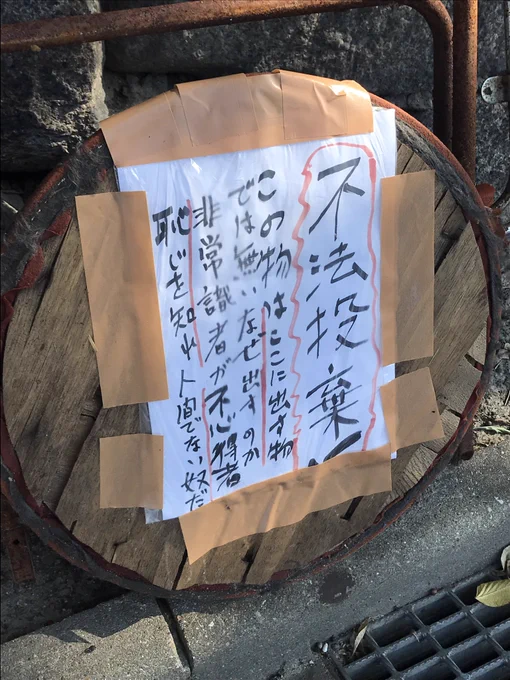 不法投棄
この物はここに出す物
では無いなぜ出すのか
非常識者が不心得者
恥じを知れ人間でない奴だ